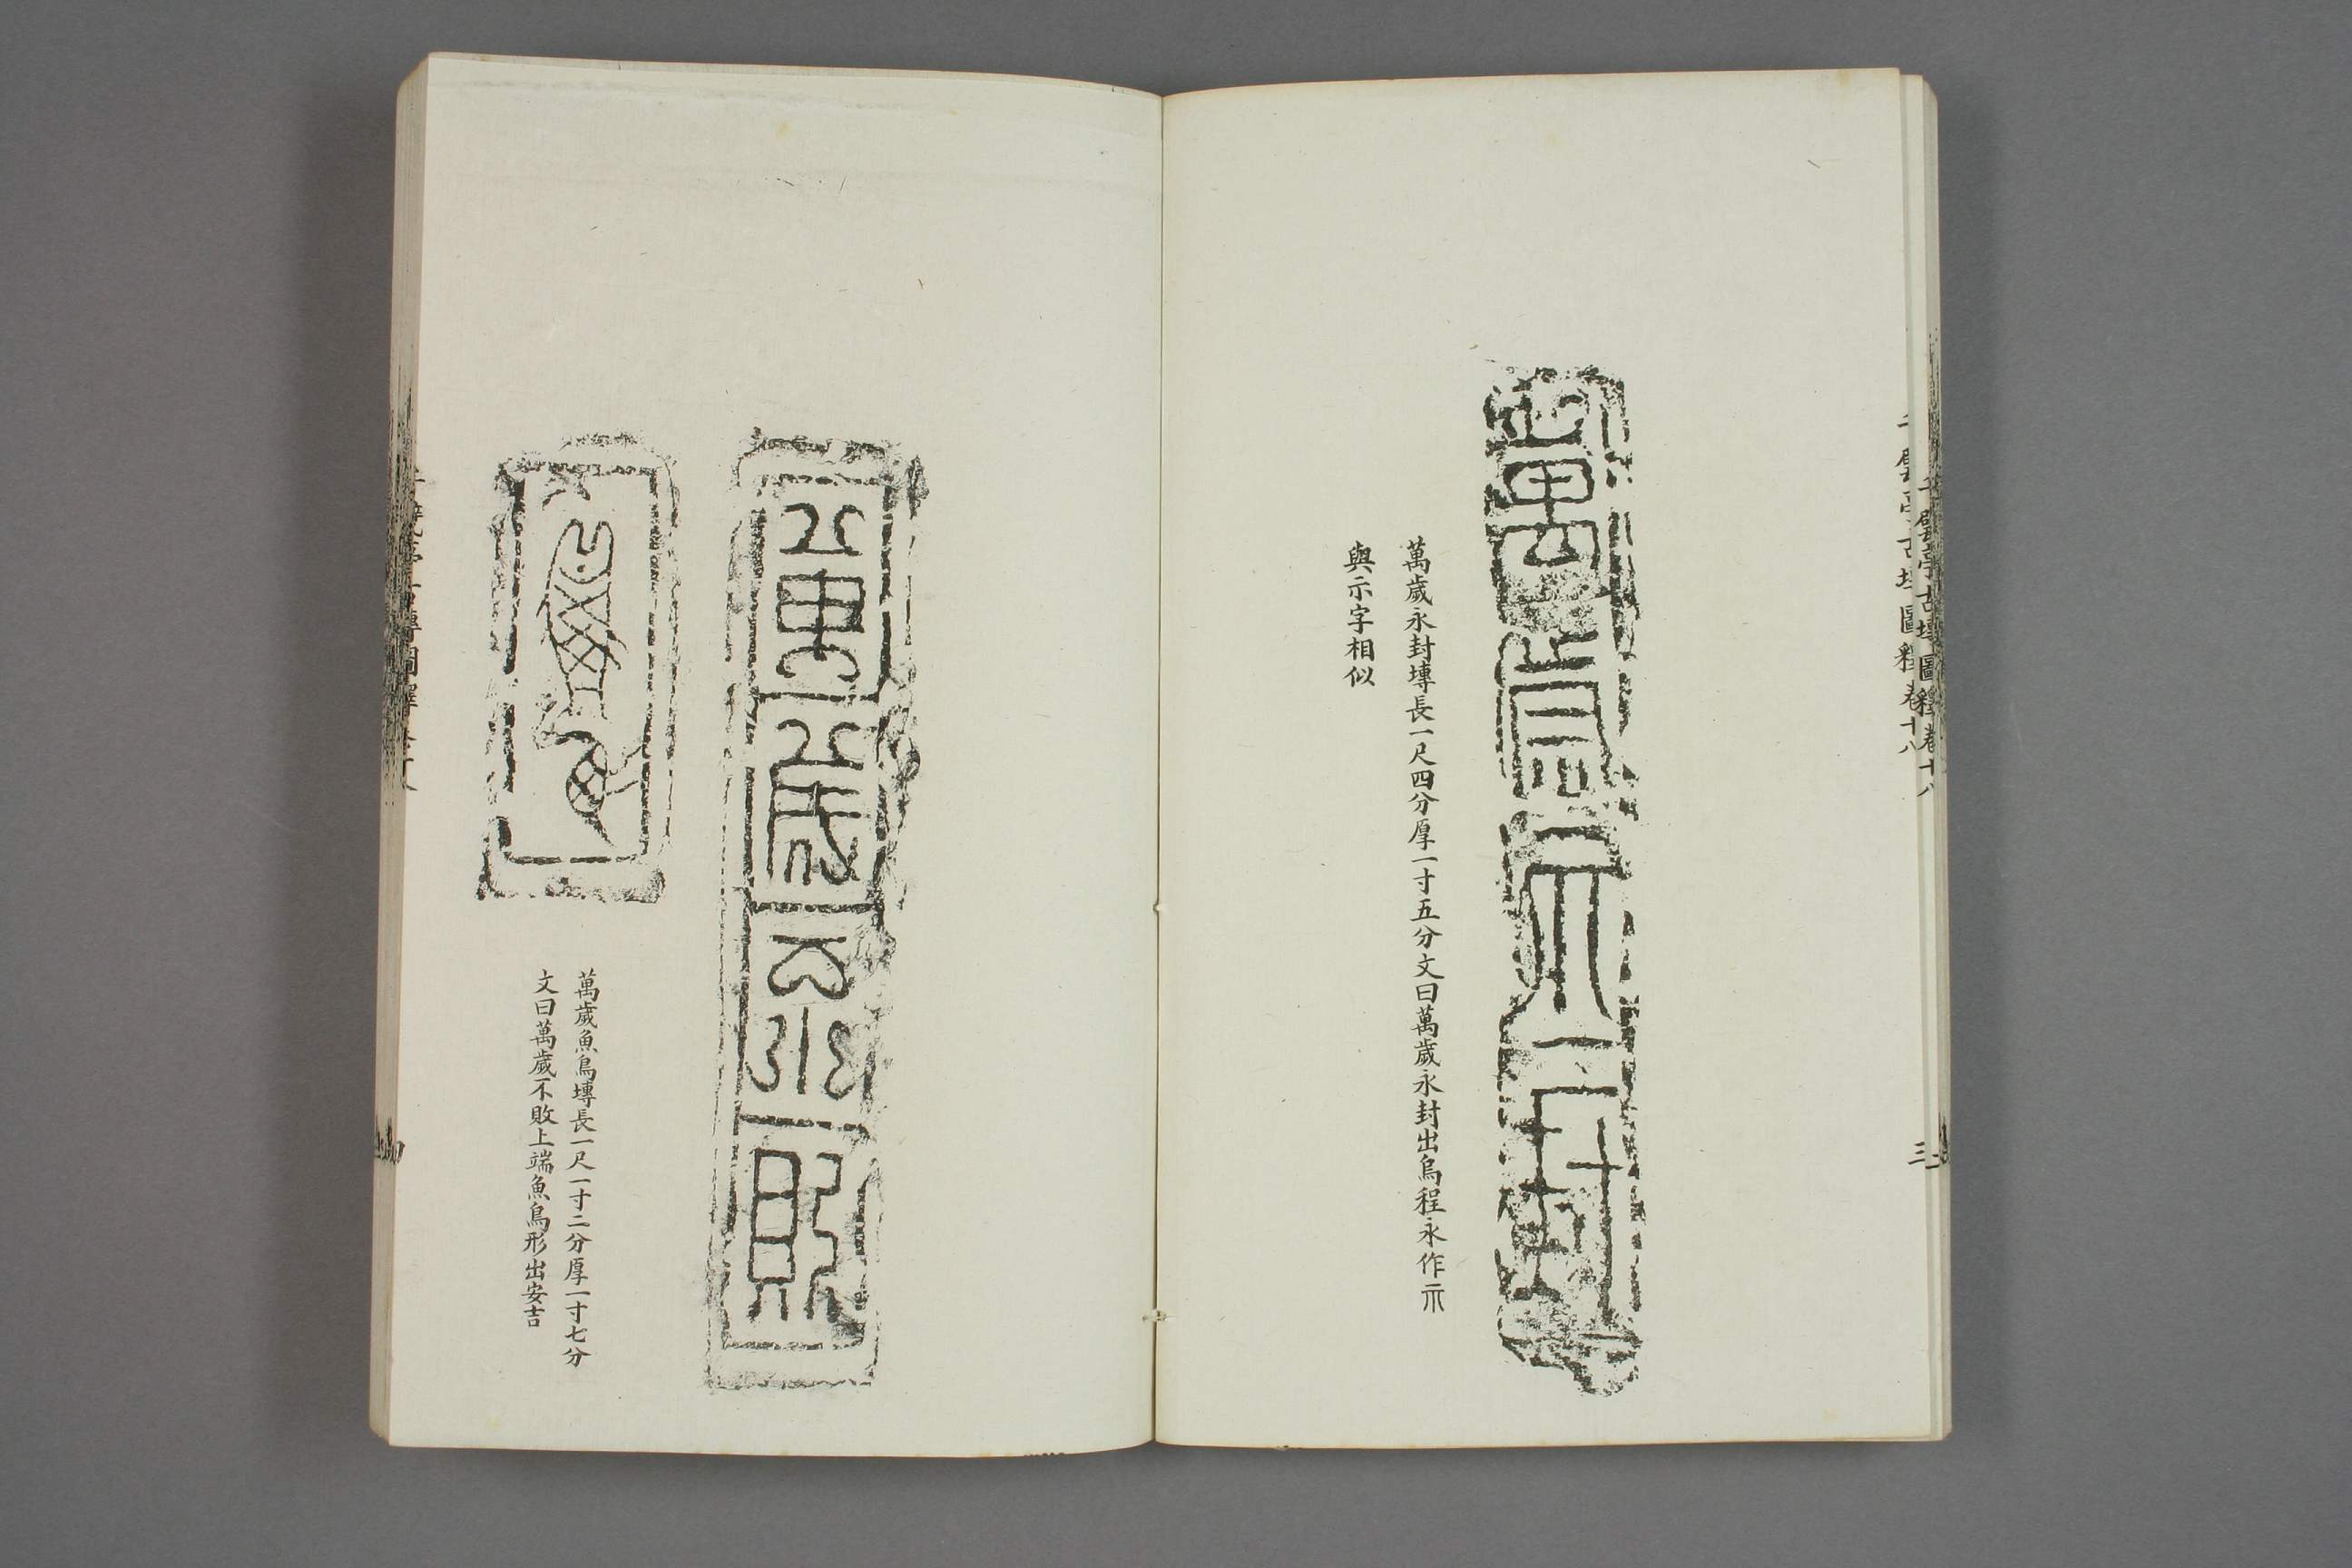 千甓亭古塼圖釋卷十八
三
萬歲永封
萬歲永封塼長一尺四分厚一寸五分文曰萬歲永封出烏程永作𠕲
與示字相似
萬歲不敗
萬歲魚鳥塼長一尺一寸二分厚一寸七分
文曰萬歲不敗上端魚鳥形出安吉